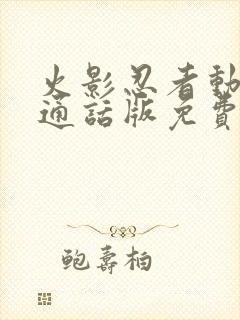 火影忍者動
通話版免費
鲍壽柏